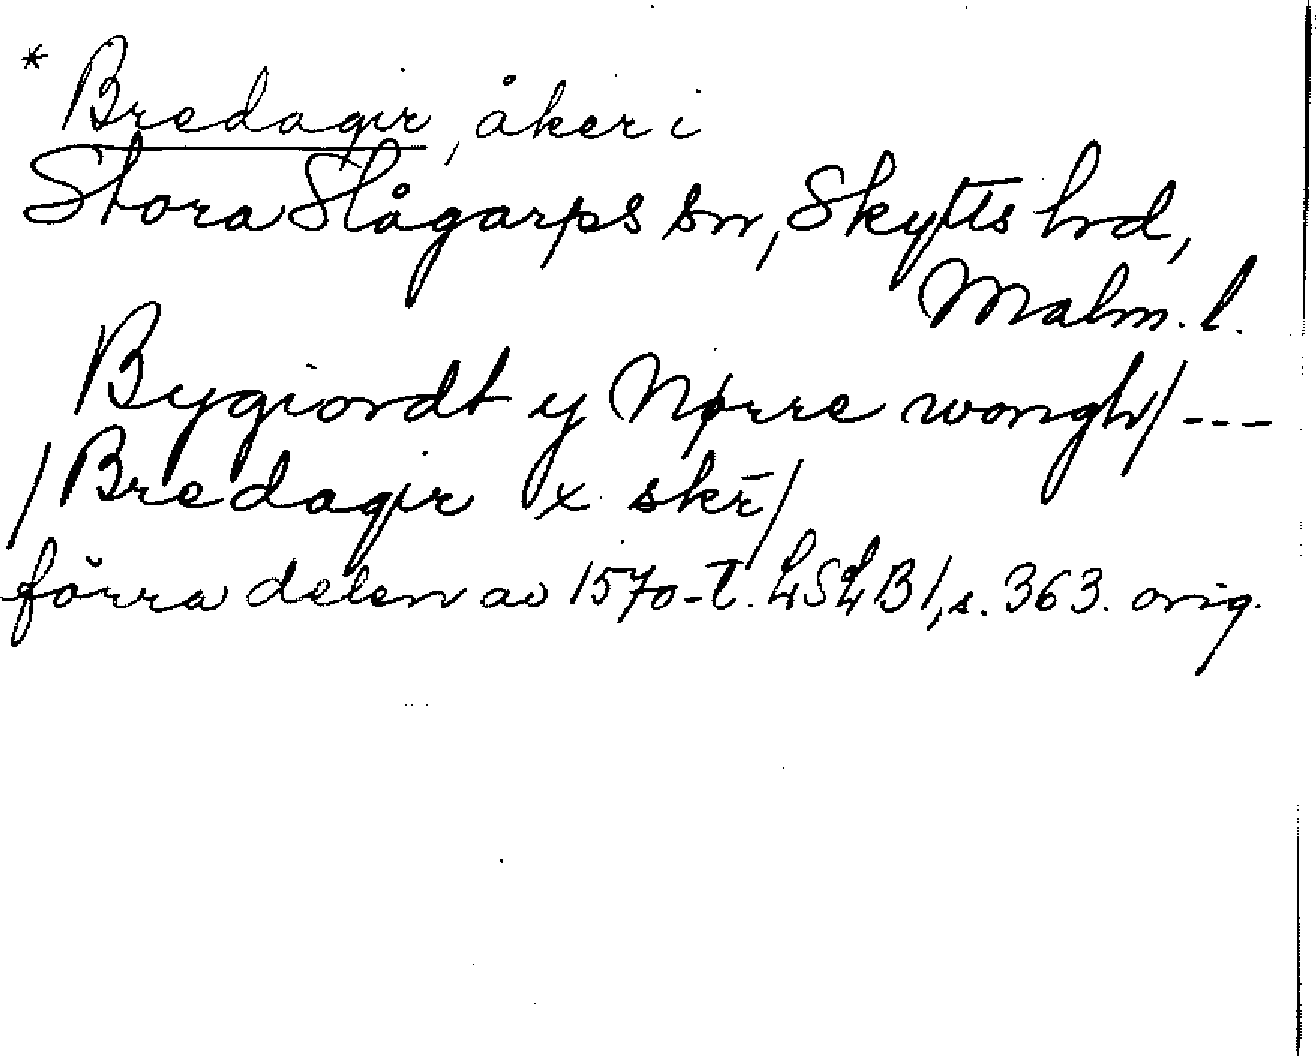 * Bredagir, åker i
Stora Slågarps sn, Skytts hd,
Malm. l.
Bygiordt y Nørre wongh/ ---
/Bredagir x skr̄/
förra delen av 1570-t. LSLB1, s. 363. orig.